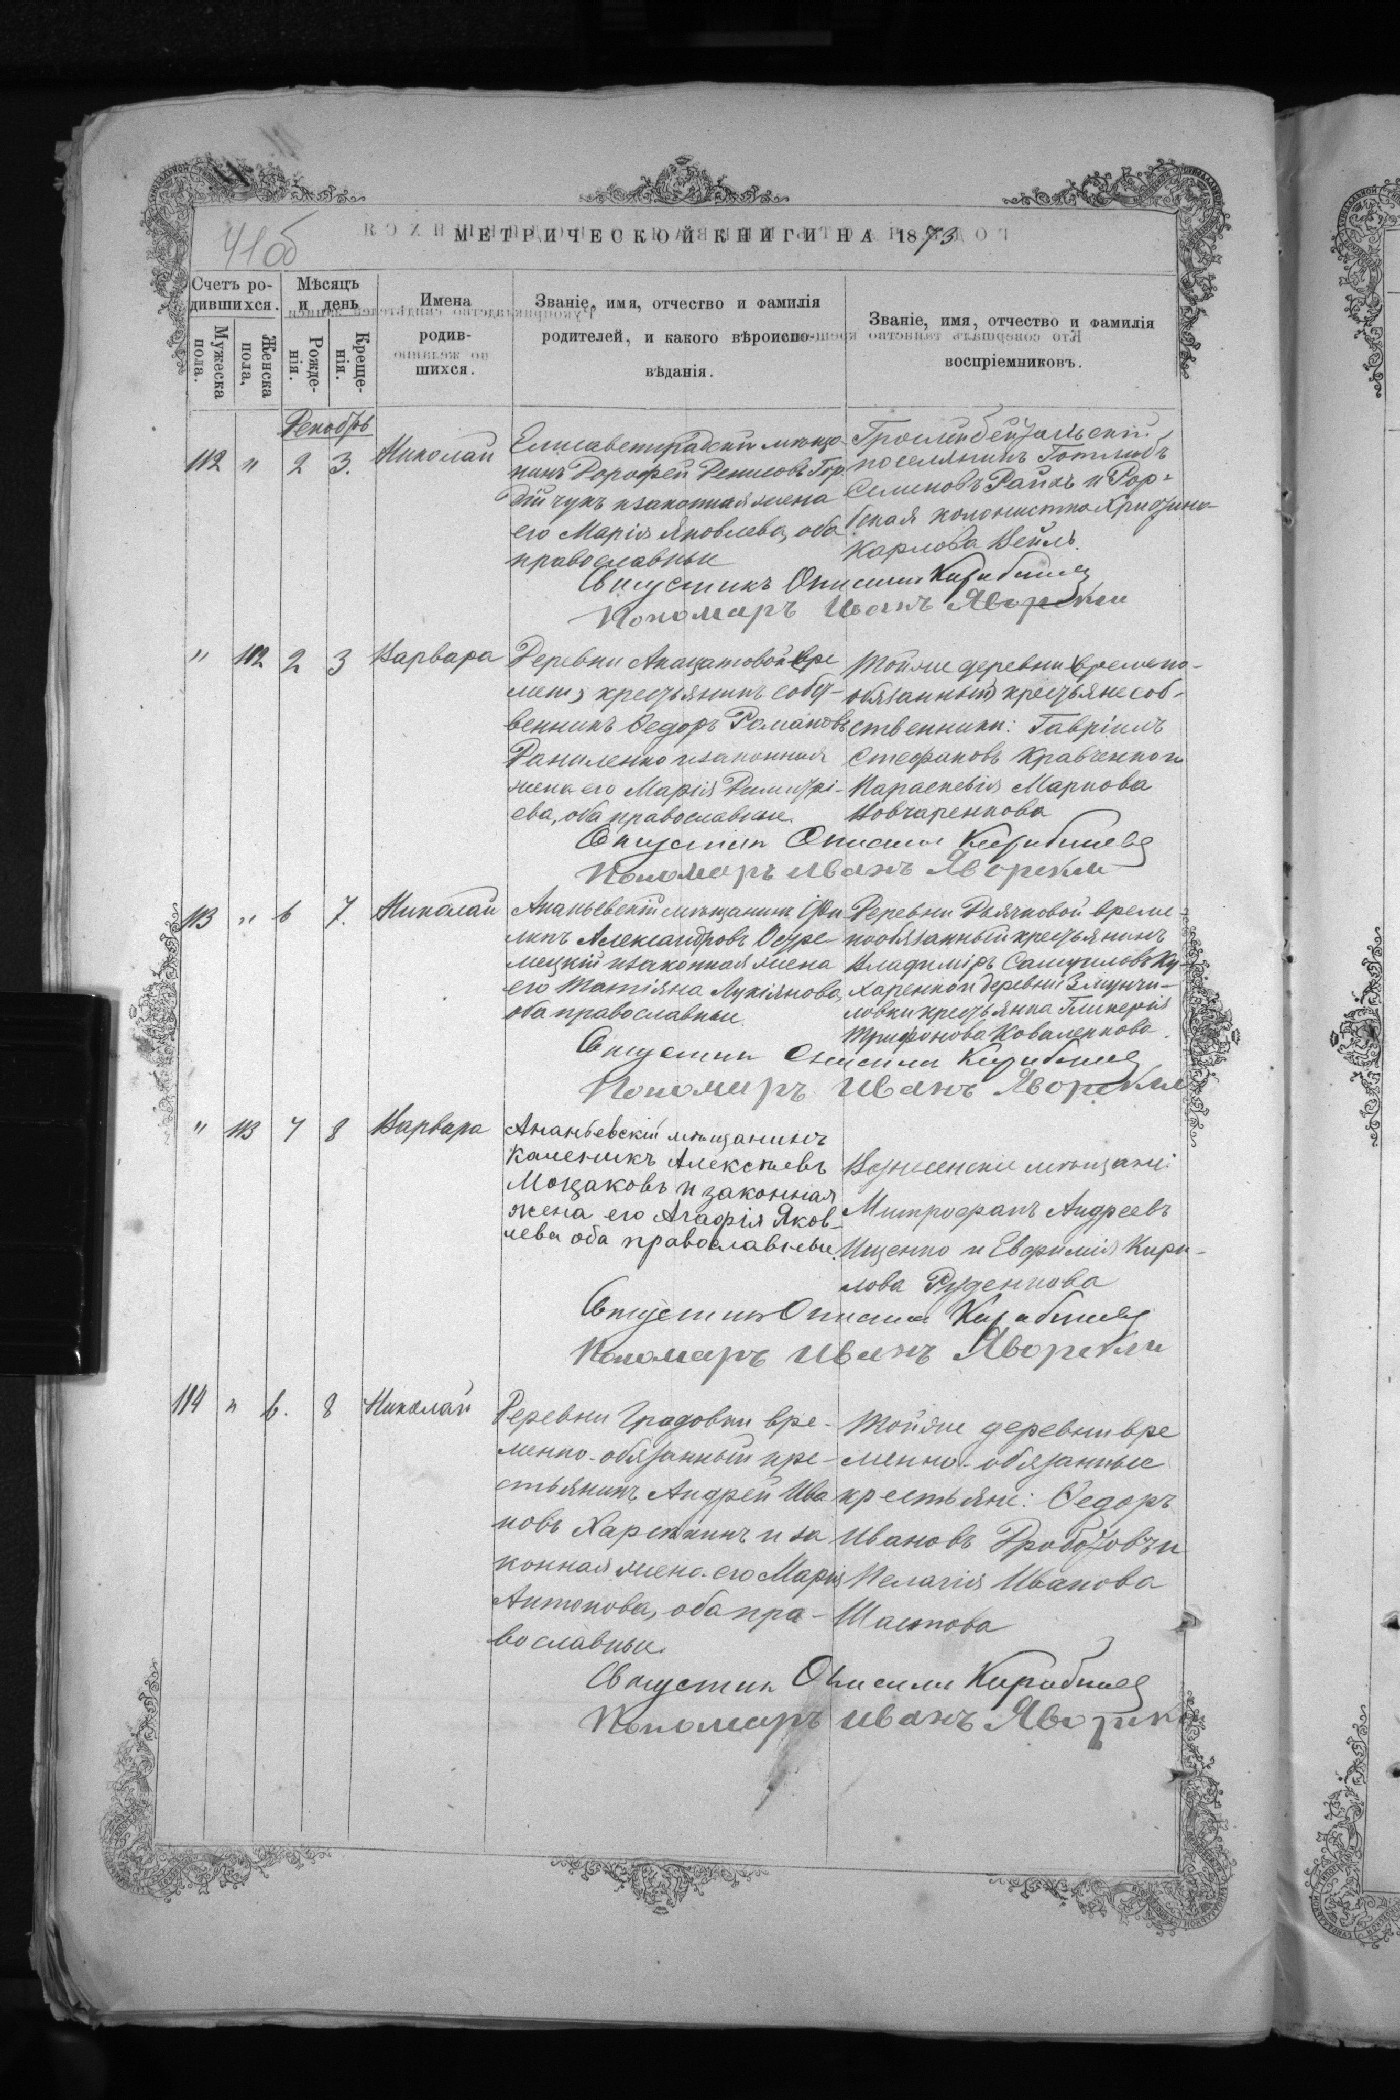 41об
МЕТРИЧЕСКОЙ КНИГИ НА 1873
Счетъ ро-
дившихся.
Мужеска
пола.
Женска
пола,
Мѣсяцъ
и день
Рожде-
нія.
Креще-
нія.
Имена
родив-
шихся.
Званіе, имя, отчество и фамилія
родителей, и какого вѣроиспо-
вѣданія.
Званіе, имя, отчество и фамилія
воспріемниковъ.
Декабрь
112 " 2 3. Николай
Елисаветградскій мѣща-
нинъ Дорофей Денисовъ Гор
дійчукъ и законная жена
его Марія Яковлева, оба
православные
поселянинъ Готлибъ
Семеновъ Райхъ и Рор-
бская колонистка Христина
Карлова Вейль.
Пономаръ Иванъ Яворскій
" 112 2 3 Варвара
Деревни вре
мен, крестьянинъ собст-
венникъ Ѳедоръ Романовъ
Даниленко и законная
жена его Марія Димитрі-
ева, оба православные.
Тойже деревни временно-
обязанные крестьяне соб-
ственники: Гавріилъ
Стефановъ Кравченко и
Параскевія Маркова
Вовчаренкова
Пономаръ Иванъ Яворскій
113 " 6 7. Николай
Ананьевскій мѣщанинъ
Александровъ
и законная жена
его Татіяна Лукіянова,
оба православные
Деревни Дьячковой време
нообязанный крестьянинъ
Владиміръ Самуиловъ Ку-
харенко и деревни
ловки крестьянка Гликерія
Трифонова Коваленкова.
Пономаръ Иванъ Яворскій
" 113 7 8 Варвара
Ананьевскій мѣщанинъ
Каленикъ Алексѣевъ
Мощаковъ и законная
жена его Агафія Яков-
лева оба православные.
Вознесенскіе мѣщане:
Митрофанъ Андреевъ
Ищенко и Евфимія Кири-
лова Руденкова
Пономаръ Иванъ Яворскій
114 " 6. 8 Николай
Деревни Градовки вре-
менно-обязанный кре-
стьянинъ Андрей Ива
новъ и за
конная жена его Марія
Антонова, оба пра-
вославные.
Тойже деревни вре
менно-обязанные
крестьяне: Ѳедоръ
Ивановъ и
Пелагія Иванова
Шастова
Пономаръ Иванъ Яворскій